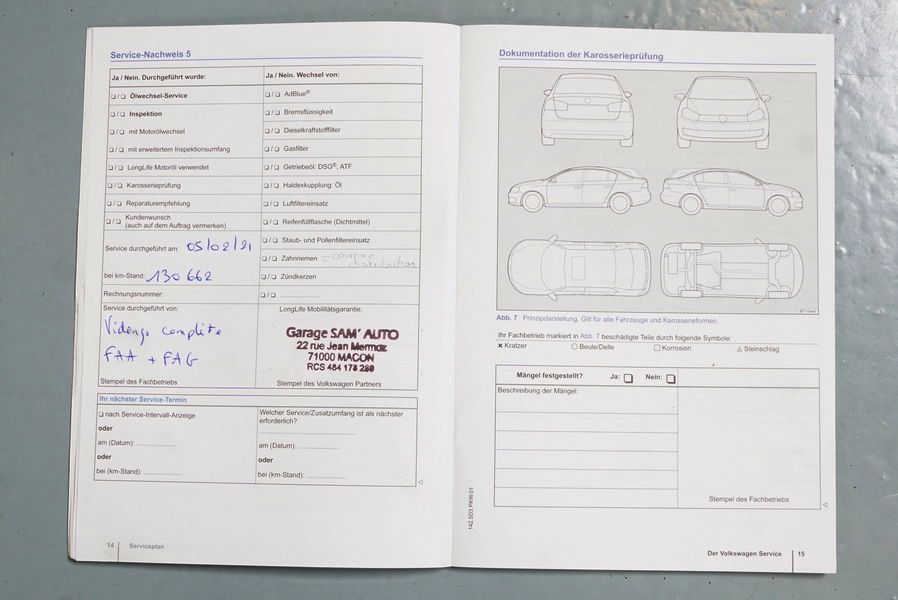 Service-Nachweis 5
Ja / Nein. Durchgeführt wurde:
❑ / ❑ Ölwechsel-Service
❑ / ❑ Inspektion
❑ / ❑ mit Motorölwechsel
❑ / ❑ mit erweitertem Inspektionsumfang
❑ / ❑ LongLife Motoröl verwendet
❑ / ❑ Karosserieprüfung
❑ / ❑ Reparaturempfehlung
❑ / ❑ Kundenwunsch
(auch auf dem Auftrag vermerken)
Service durchgeführt am: 05/02/21
bei km-Stand: 130 662
Rechnungsnummer:
Service durchgeführt von:
Vidange complète
FAA + FAG
Stempel des Fachbetriebs
Ja / Nein. Wechsel von:
❑ / ❑ AdBlue®
❑ / ❑ Bremsflüssigkeit
❑ / ❑ Dieselkraftstofffilter
❑ / ❑ Gasfilter
❑ / ❑ Getriebeöl: DSG®, ATF
❑ / ❑ Haldexkupplung: Öl
❑ / ❑ Luftfiltereinsatz
❑ / ❑ Reifenfüllflasche (Dichtmittel)
❑ / ❑ Staub- und Pollenfiltereinsatz
❑ / ❑ Zahnriemen = courroie
distribution
❑ / ❑ Zündkerzen
❑ / ❑ ....................
LongLife Mobilitätsgarantie:
Garage SAM' AUTO
22 rue Jean Mermoz
71000 MACON
RCS 484 178 280
Stempel des Volkswagen Partners
Ihr nächster Service-Termin
❑ nach Service-Intervall-Anzeige
oder
am (Datum): ....................
oder
bei (km-Stand): ....................
Welcher Service/Zusatzumfang ist als nächster
erforderlich?
........................................
am (Datum): ....................
oder
bei (km-Stand): ....................
14 Serviceplan
Dokumentation der Karosserieprüfung
Abb. 7 Prinzipdarstellung. Gilt für alle Fahrzeuge und Karosserieformen.
Ihr Fachbetrieb markiert in Abb. 7 beschädigte Teile durch folgende Symbole:
✖ Kratzer ○ Beule/Delle □ Korrosion △ Steinschlag
Mängel festgestellt? Ja: ❑ Nein: ❑
Beschreibung der Mängel:
Stempel des Fachbetriebs
142.5D3.PKW.01
Der Volkswagen Service 15